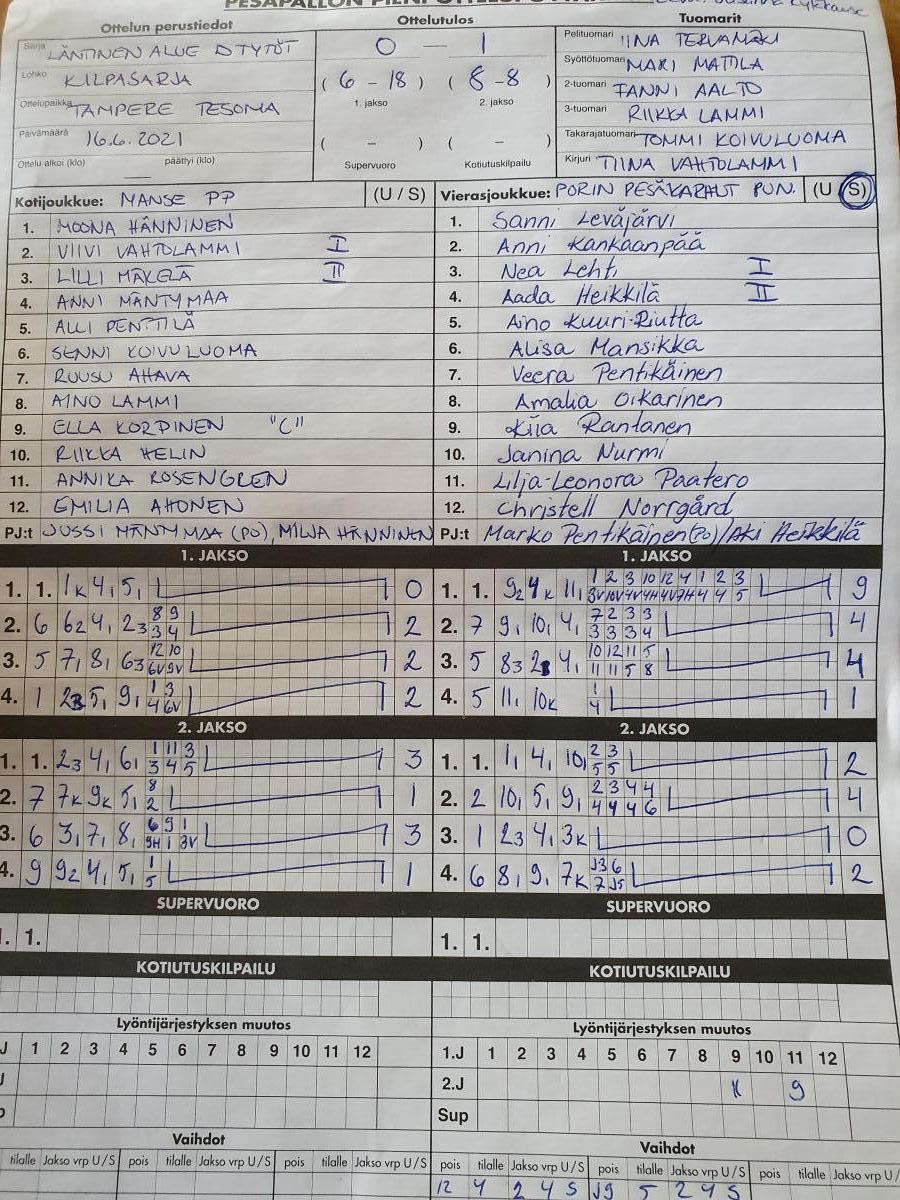 Ottelun perustiedot
Sarja LÄNTINEN ALUE D TYTÖT
Lohko KILPASARJA
Ottelupaikka TAMPERE TESOMA
Päivämäärä 16.6.2021
Ottelu alkoi (klo) — päättyi (klo)
Ottelutulos
0 — 1
(6 - 18) (8 - 8)
1. jakso 2. jakso
( - ) ( - )
Supervuoro Kotiutuskilpailu
Tuomarit
Pelituomari IINA TERVAMÄKI
Syöttötuomari MARI MATTILA
2-tuomari FANNI AALTO
3-tuomari RIIKKA LAMMI
Takarajatuomari TOMMI KOIVULUOMA
Kirjuri TIINA VAHTOLAMMI
Kotijoukkue: MANSE PP (U / S)
1. MOONA HÄNNINEN
2. VIIVI VAHTOLAMMI I
3. LILLI MÄKELÄ II
4. ANNI MÄNTYMAA
5. ALLI PENTTILÄ
6. SENNI KOIVULUOMA
7. RUUSU AHAVA
8. AINO LAMMI
9. ELLA KORPINEN "C"
10. RIIKKA HELIN
11. ANNIKA ROSENGREN
12. EMILIA AHONEN
PJ:t JUSSI MÄNTYMAA (PO), MILJA HÄNNINEN
Vierasjoukkue: PORIN PESÄKARHUT PUN. (U / S)
1. Sanni Leväjärvi
2. Anni Kankaanpää
3. Nea Lehti I
4. Aada Heikkilä II
5. Aino Kuuri-Riutta
6. Alisa Mansikka
7. Veera Pentikäinen
8. Amalia Oikarinen
9. Kiia Rantanen
10. Janina Nurmi
11. Lilja-Leonora Paatero
12. Christell Norrgård
PJ:t Marko Pentikäinen (PO) / Aki Heikkilä
1. JAKSO
1. 1. 1K 4, 5, 0
2. 6 62 4, 23 8 9 2
3 4
3. 5 7, 8, 63 12 10 2
6V 9V
4. 1 5, 9, 1 3 2
4 6V
2. JAKSO
1. 1. 23 4, 6, 1 11 3 3
3 4 5
2. 7 7K 9K 5, 8 1
2
3. 6 3, 7, 8, 6 9 1 3
9H 1 3V
4. 9 92 4, 5, 1 1
5
SUPERVUORO
1. 1.
KOTIUTUSKILPAILU
Lyöntijärjestyksen muutos
J 1 2 3 4 5 6 7 8 9 10 11 12
Vaihdot
tilalle Jakso vrp U/S pois tilalle Jakso vrp U/S pois tilalle Jakso vrp U/S
1. JAKSO
1. 1. 92 4K 11, 1 2 3 10 12 4 1 2 3 9
3V 10V 4V 4H 4V 7H 4 4 5
2. 7 9, 10, 4, 7 2 3 3 4
3 3 3 4
3. 5 83 4, 10 12 11 5 4
11 11 5 8
4. 5 11, 10K 1 1
4
2. JAKSO
1. 1. 1, 4, 10, 2 3 2
5 5
2. 2 10, 5, 9, 2 3 4 4 4
4 4 4 6
3. 1 23 4, 3K 0
4. 6 8, 9, 7K J3 6 2
7 J5
SUPERVUORO
1. 1.
KOTIUTUSKILPAILU
Lyöntijärjestyksen muutos
1.J 1 2 3 4 5 6 7 8 9 10 11 12
2.J K 9
Sup
Vaihdot
pois tilalle Jakso vrp U/S pois tilalle Jakso vrp U/S pois tilalle Jakso vrp U/S
12 4 2 4 S J9 5 2 4 S